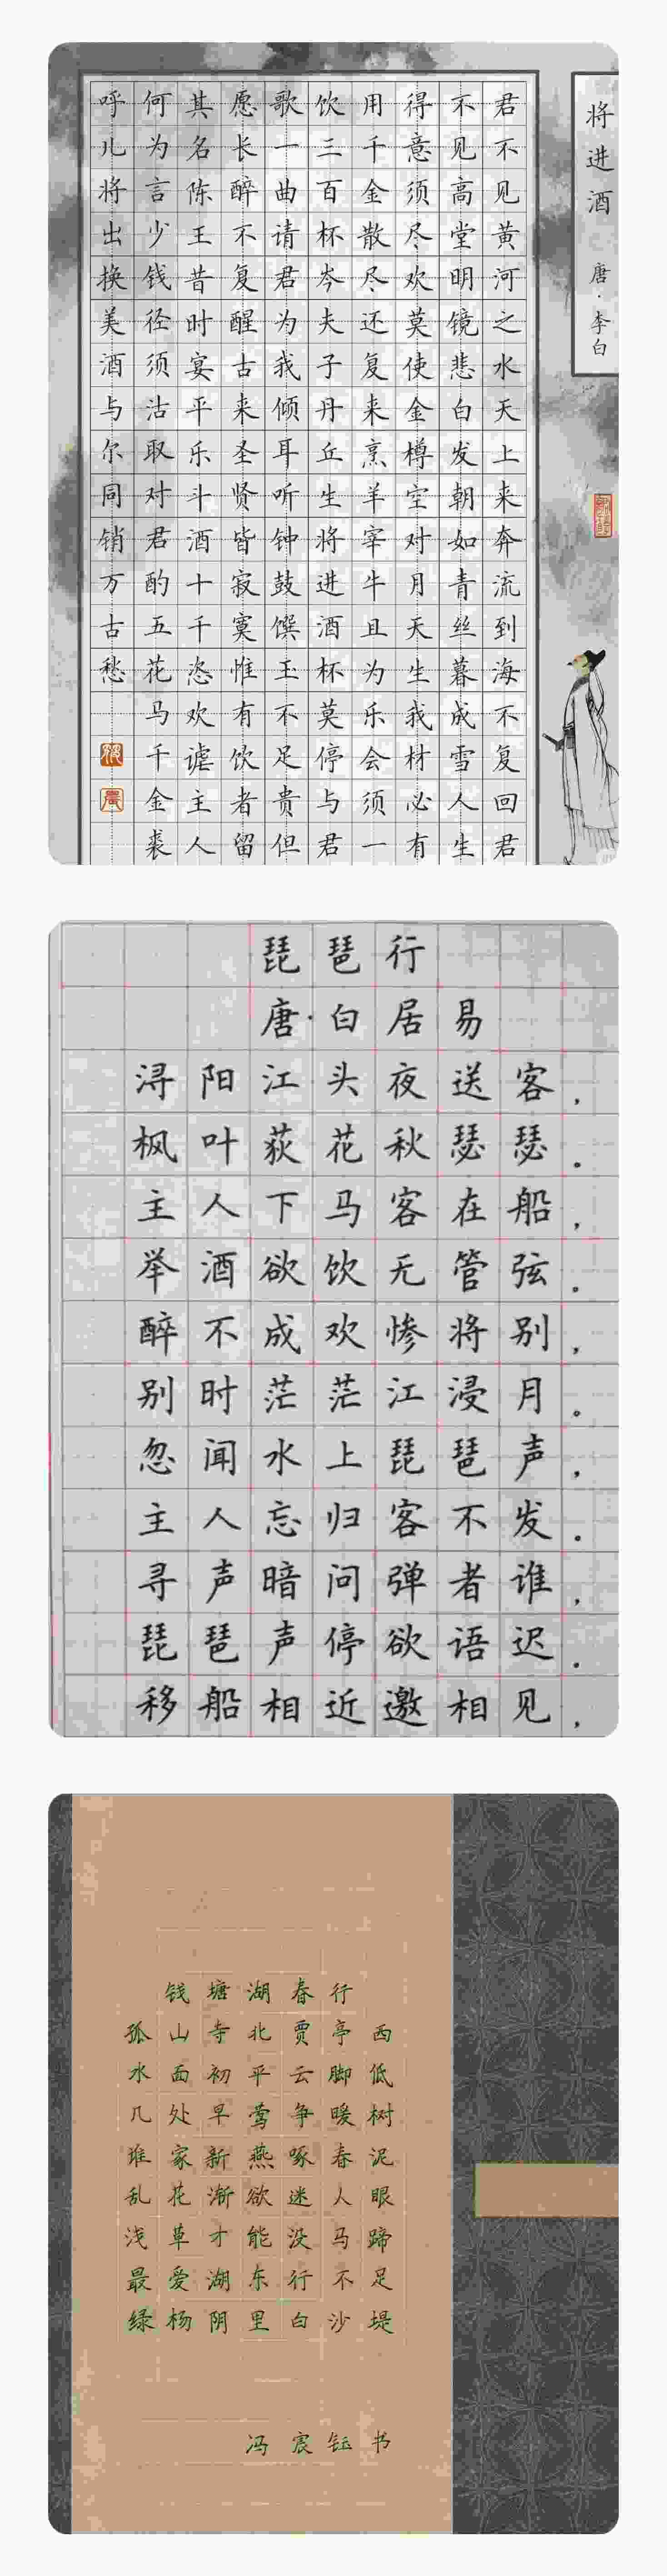 将进酒 唐·李白
君不见黄河之水天上来奔流到海不复回君
不见高堂明镜悲白发朝如青丝暮成雪人生
得意须尽欢莫使金樽空对月天生我材必有
用千金散尽还复来烹羊宰牛且为乐会须一
饮三百杯岑夫子丹丘生将进酒杯莫停与君
歌一曲请君为我倾耳听钟鼓馔玉不足贵但
愿长醉不复醒古来圣贤皆寂寞惟有饮者留
其名陈王昔时宴平乐斗酒十千恣欢谑主人
何为言少钱径须沽取对君酌五花马千金裘
呼儿将出换美酒与尔同销万古愁
琵琶行
唐·白居易
浔阳江头夜送客，
枫叶荻花秋瑟瑟。
主人下马客在船，
举酒欲饮无管弦。
醉不成欢惨将别，
别时茫茫江浸月。
忽闻水上琵琶声，
主人忘归客不发。
寻声暗问弹者谁，
琵琶声停欲语迟。
移船相近邀相见，
钱塘湖春行
孤山寺北贾亭西
水面初平云脚低
几处早莺争暖树
谁家新燕啄春泥
乱花渐欲迷人眼
浅草才能没马蹄
最爱湖东行不足
绿杨阴里白沙堤
冯宸钰书